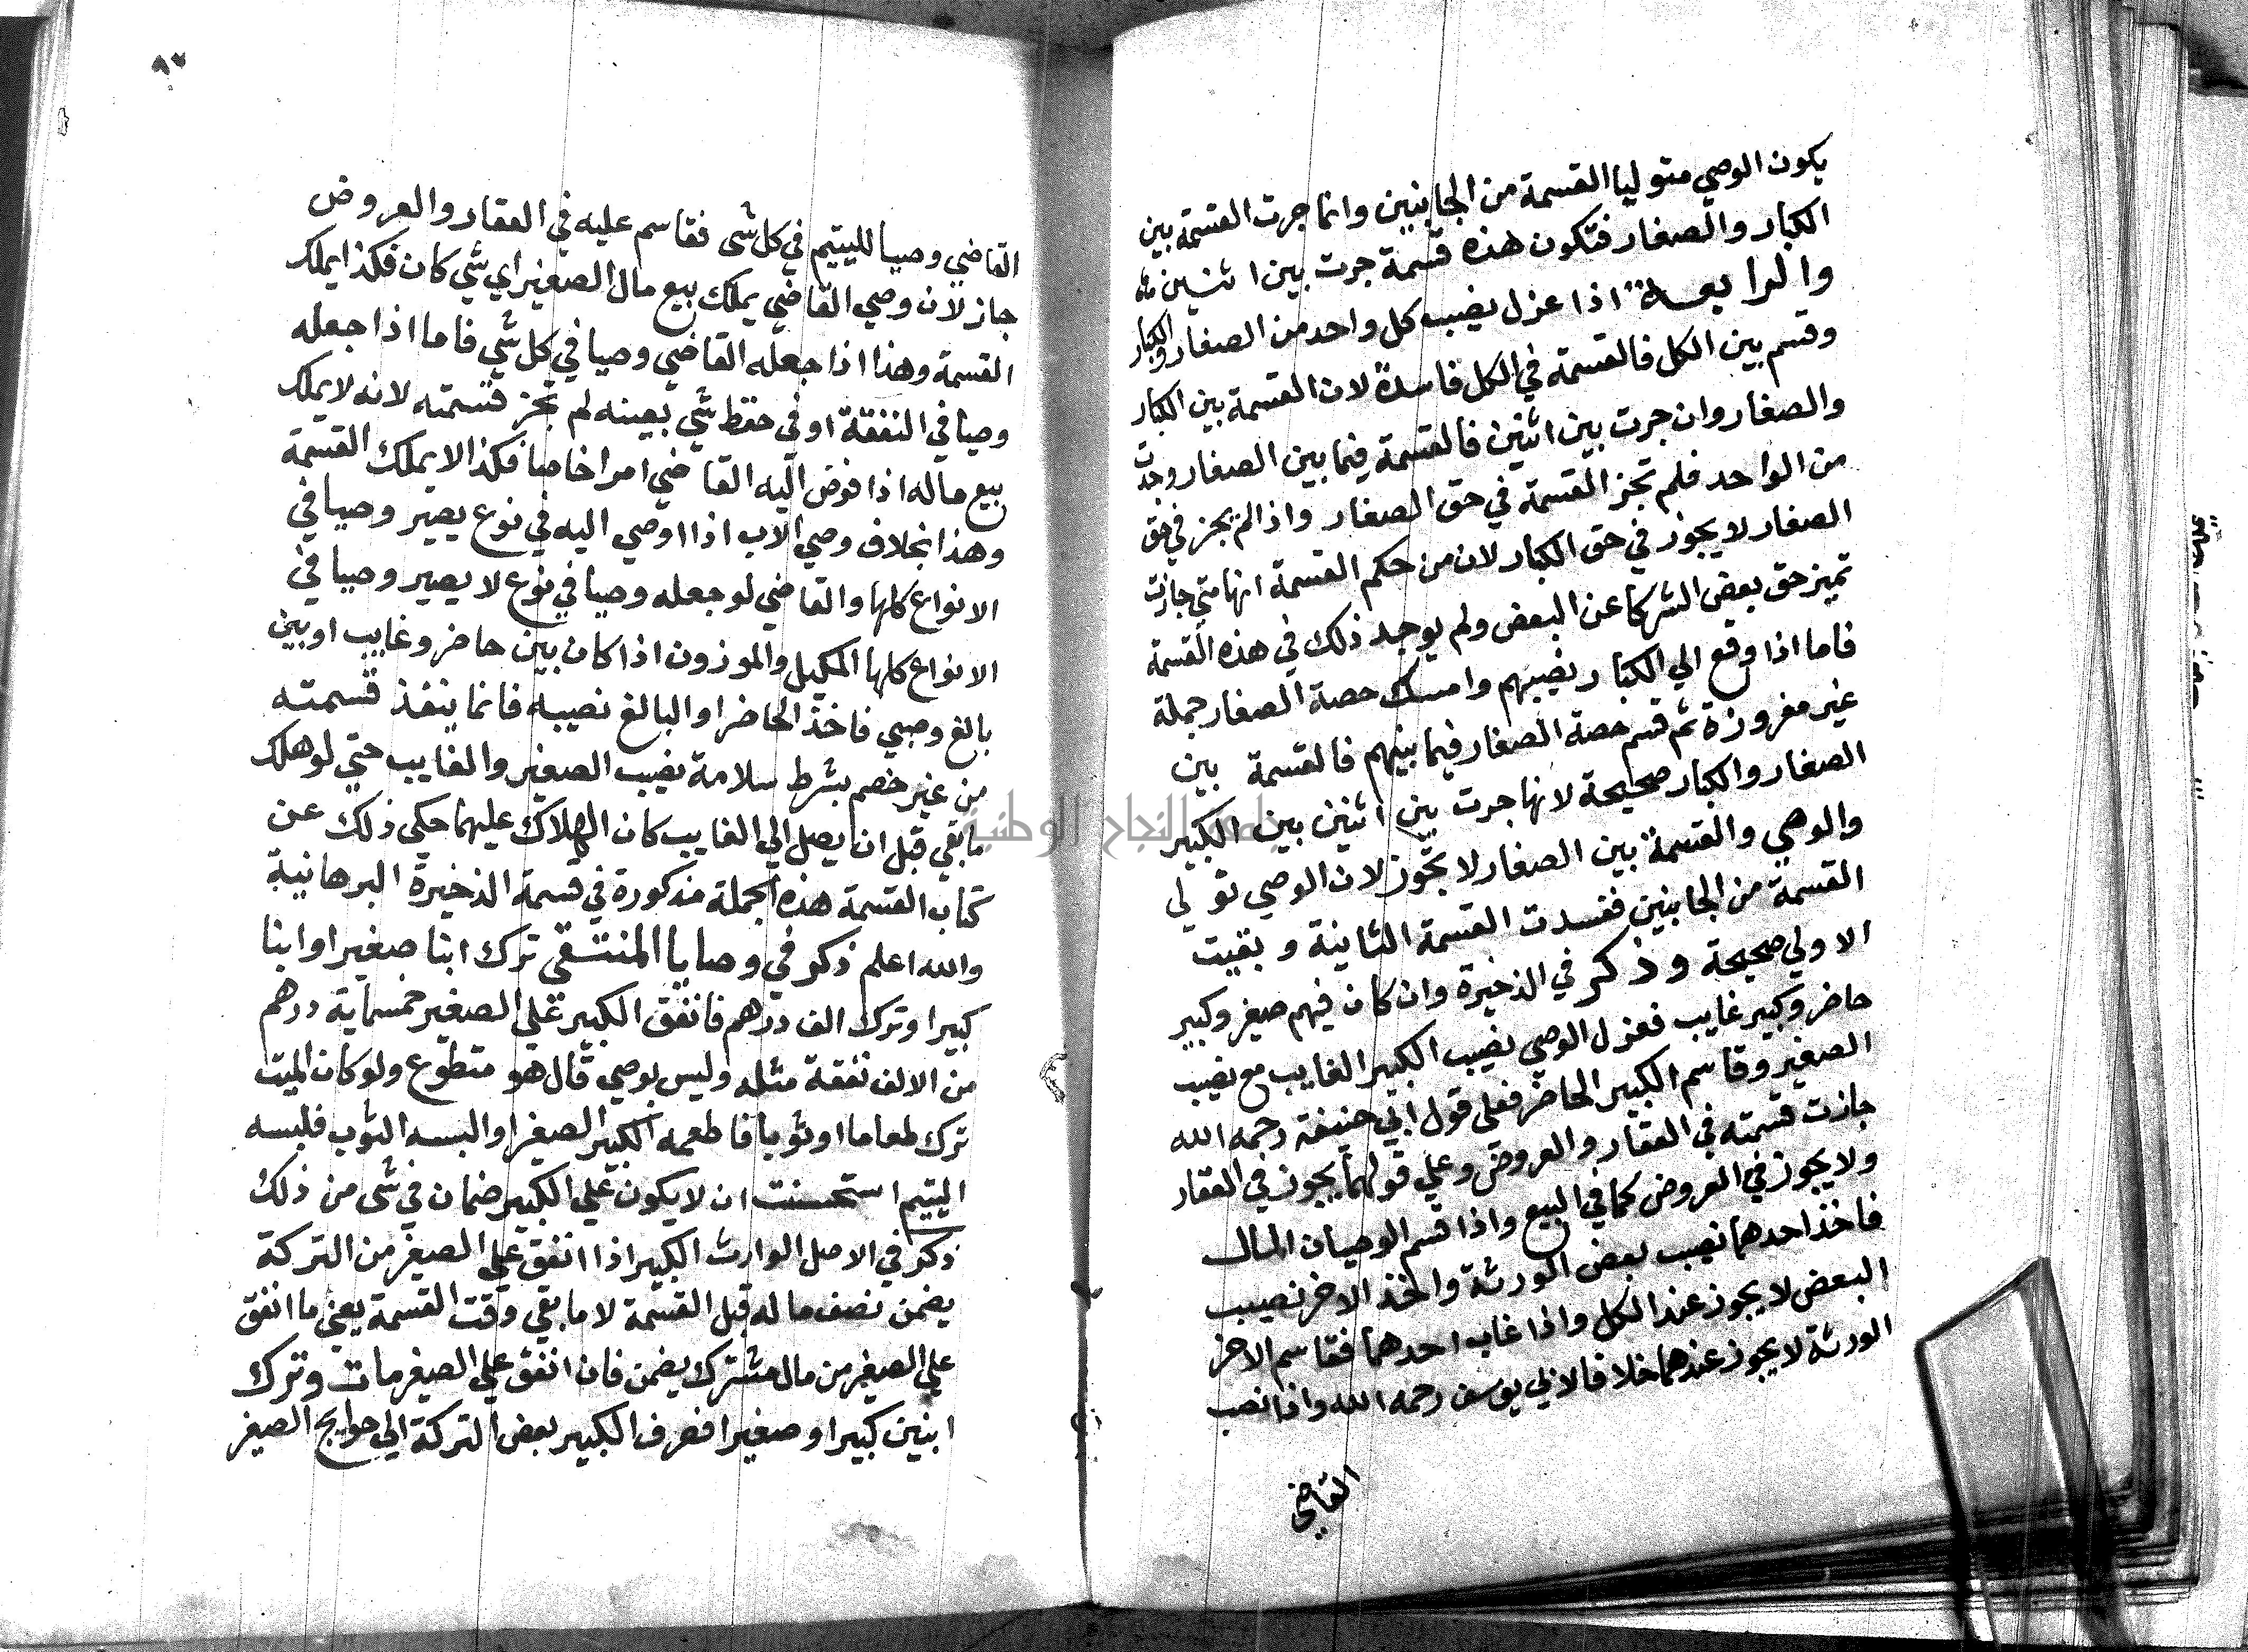 يكون الوصي متوليا القسمة من الجانبين وانما جرت القسمة بين
الكبار والصغار فتكون هذه قسمة جرت بين اثنين
والرابعة اذا عزل نصيب كل واحد من الصغار والكبار
وقسم بين الكل فالقسمة في الكل فاسدة لان القسمة بين الكبار
والصغار وان جرت بين اثنين فالقسمة فيما بين الصغار وجدت
من الواحد فلم تجز القسمة في حق الصغار واذا لم يجز في حق
الصغار لا يجوز في حق الكبار لان من حكم القسمة انها متي جازت
تميز حق بعض الشركا عن البعض ولم يوجد ذلك في هذه القسمة
فاما اذا وقع الي الكبار نصيبهم وامسك حصة الصغار جملة
غير مفروزة ثم قسم حصة الصغار فيما بينهم فالقسمة بين
الصغار والكبار صحيحة لانها جرت بين اثنين بين الكبير
والوصي والقسمة بين الصغار لا تجوز لان الوصي تولي
القسمة من الجانبين ففسدت القسمة الثانية وبقيت
الاولي صحيحة وذكر في الذخيرة وان كان فيهم صغير وكبير
حاضر وكبير غايب فعزل الوصي نصيب الكبير الغايب مع نصيب
الصغير وقاسم الكبير الحاضر فعلى قول ابي حنيفة رحمه الله
جازت قسمته في العقار والعروض وعلي قولهما يجوز في العقار
ولا يجوز في العروض كما في البيع واذا قسم الوصيان المال
فاخذ احدهما نصيب بعض الورثة واخذ الاخر نصيب
البعض لا يجوز عند الكل واذا غاب احدهما فقاسم الاخر
الورثة لا يجوز عندهما خلافا لابي يوسف رحمه الله واذا نصب
القاضي
٨٢
القاضي وصيا لليتيم في كل شى فقاسم عليه في العقار والعروض
جاز لان وصي القاضي يملك بيع مال الصغير اي شي كان فكذا يملك
القسمة وهذا اذا جعله القاضي وصيا في كل شي فاما اذا جعله
وصيا في النفقة او في حفظ شي بعينه لم تجز قسمته لانه لا يملك
بيع ماله اذا فوض اليه القاضي امرا خاصا فكذا لا يملك القسمة
وهذا بخلاف وصي الاب اذا اوصي اليه في نوع يصير وصيا في
الانواع كلها والقاضي لو جعله وصيا في نوع لا يصير وصيا في
الانواع كلها المكيل والموزون اذا كان بين حاضر وغايب او بين
بالغ وصبي فاخذ الحاضر او البالغ نصيبه فانما ينفذ قسمته
من غير خصم بشرط سلامة نصيب الصغير والغايب حتي لو هلك
ما بقي قبل ان يصل الي الغايب كان الهلاك عليهما حكي ذلك عن
كتاب القسمة هذه الجملة مذكورة في قسمة الذخيرة البرهانية
والله اعلم ذكر في وصايا المنتقى ترك ابنا صغيرا وابنا
كبيرا وترك الف درهم فانفق الكبير علي الصغير خمسماية درهم
من الالف نفقة مثله وليس بوصي قال هو متطوع ولو كان الميت
ترك طعاما او ثوبا فاطعمه الكبير الصغير او البسه الثوب فلبسه
اليتيم استحسنت ان لا يكون علي الكبير ضمان في شى من ذلك
ذكر في الاصل الوارث الكبير اذا انفق علي الصغير من التركة
يضمن نصف ماله قبل القسمة لا ما بقي وقت القسمة يعني ما انفق
علي الصغير من مال مشترك يضمن فان انفق علي الصغير مات وترك
ابنين كبيرا وصغيرا فصرف الكبير بعض التركة الي حوايج الصغير
جامعة النجاح الوطنية